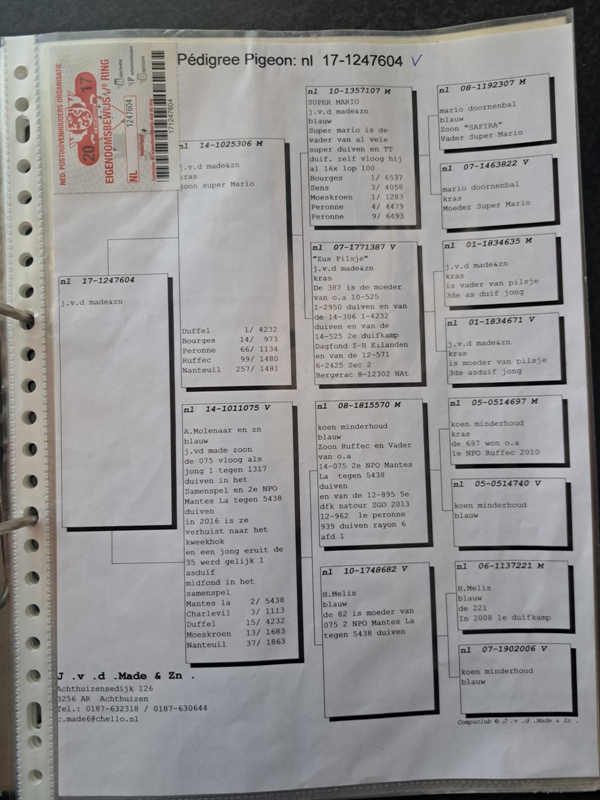 Pédigree Pigeon: nl 17-1247604 V
NED. POSTDUIVENHOUDERS ORGANISATIE
20 17
EIGENDOMSBEWIJS V/D RING
NL
1247604
171247604
nl 17-1247604
j.v.d made&zn
nl 14-1025306 M
j.v.d made&zn
kras
zoon super Mario
Duffel 1/ 4232
Bourges 14/ 973
Peronne 66/ 1134
Ruffec 99/ 1480
Nanteuil 257/ 1481
nl 14-1011075 V
A.Molenaar en zn
blauw
j.vd made zoon
de 075 vloog als
jong 1 tegen 1317
duiven in het
Samenspel en 2e NPO
Mantes La tegen 5438
duiven
in 2016 is ze
verhuist naar het
kweekhok
en een jong eruit de
35 werd gelijk 1
asduif
midfond in het
samenspel
Mantes la 2/ 5438
Charlevil 3/ 1113
Duffel 15/ 4232
Moeskroen 13/ 1683
Nanteuil 37/ 1863
nl 10-1357107 M
SUPER MARIO
j.v.d made&zn
blauw
Super mario is de
vader van al vele
super duiven en TT
duif. zelf vloog hij
al 16x lop 100
Bourges 1/ 6537
Sens 3/ 4058
Moeskroen 1/ 1283
Peronne 4/ 4479
Peronne 9/ 6493
nl 07-1771387 V
"Zus Pilsje"
j.v.d made&zn
kras
De 387 is de moeder
van o.a 10-525
1-2950 duiven en van
de 14-306 1-4232
duiven en van de
14-525 2e duifkamp
Dagfond Z-H Eilanden
en van de 12-571
6-2425 Sec 2
Bergerac 8-12302 NAt
nl 08-1815570 M
koen minderhoud
blauw
Zoon Ruffec en Vader
van o.a
14-075 2e NPO Mantes
La tegen 5438
duiven
en van de 12-895 5e
dfk natour SGO 2013
12-962 1e peronne
939 duiven rayon 6
afd 1
nl 10-1748682 V
H.Melis
blauw
de 82 is moeder van
075 2 NPO Mantes La
tegen 5438 duiven
nl 08-1192307 M
mario doornenbal
blauw
Zoon "SAFIRA"
Vader Super Mario
nl 07-1463822 V
mario doornenbal
kras
Moeder Super Mario
nl 01-1834635 M
j.v.d made&zn
kras
is vader van pilsje
3de as duif jong
nl 01-1834671 V
j.v.d made&zn
kras
is moeder van pilsje
3de asduif jong
nl 05-0514697 M
koen minderhoud
kras
de 697 won o.a
1e NPO Ruffec 2010
nl 05-0514740 V
koen minderhoud
blauw
nl 06-1137221 M
H.Melis
blauw
de 221
In 2008 1e duifkamp
nl 07-1902006 V
koen minderhoud
blauw
J .v .d .Made & Zn .
Achthuizensedijk 126
3256 AR Achthuizen
Tel.: 0187-632318 / 0187-630644
c.made6@chello.nl
Compuclub © J .v .d .Made & Zn .